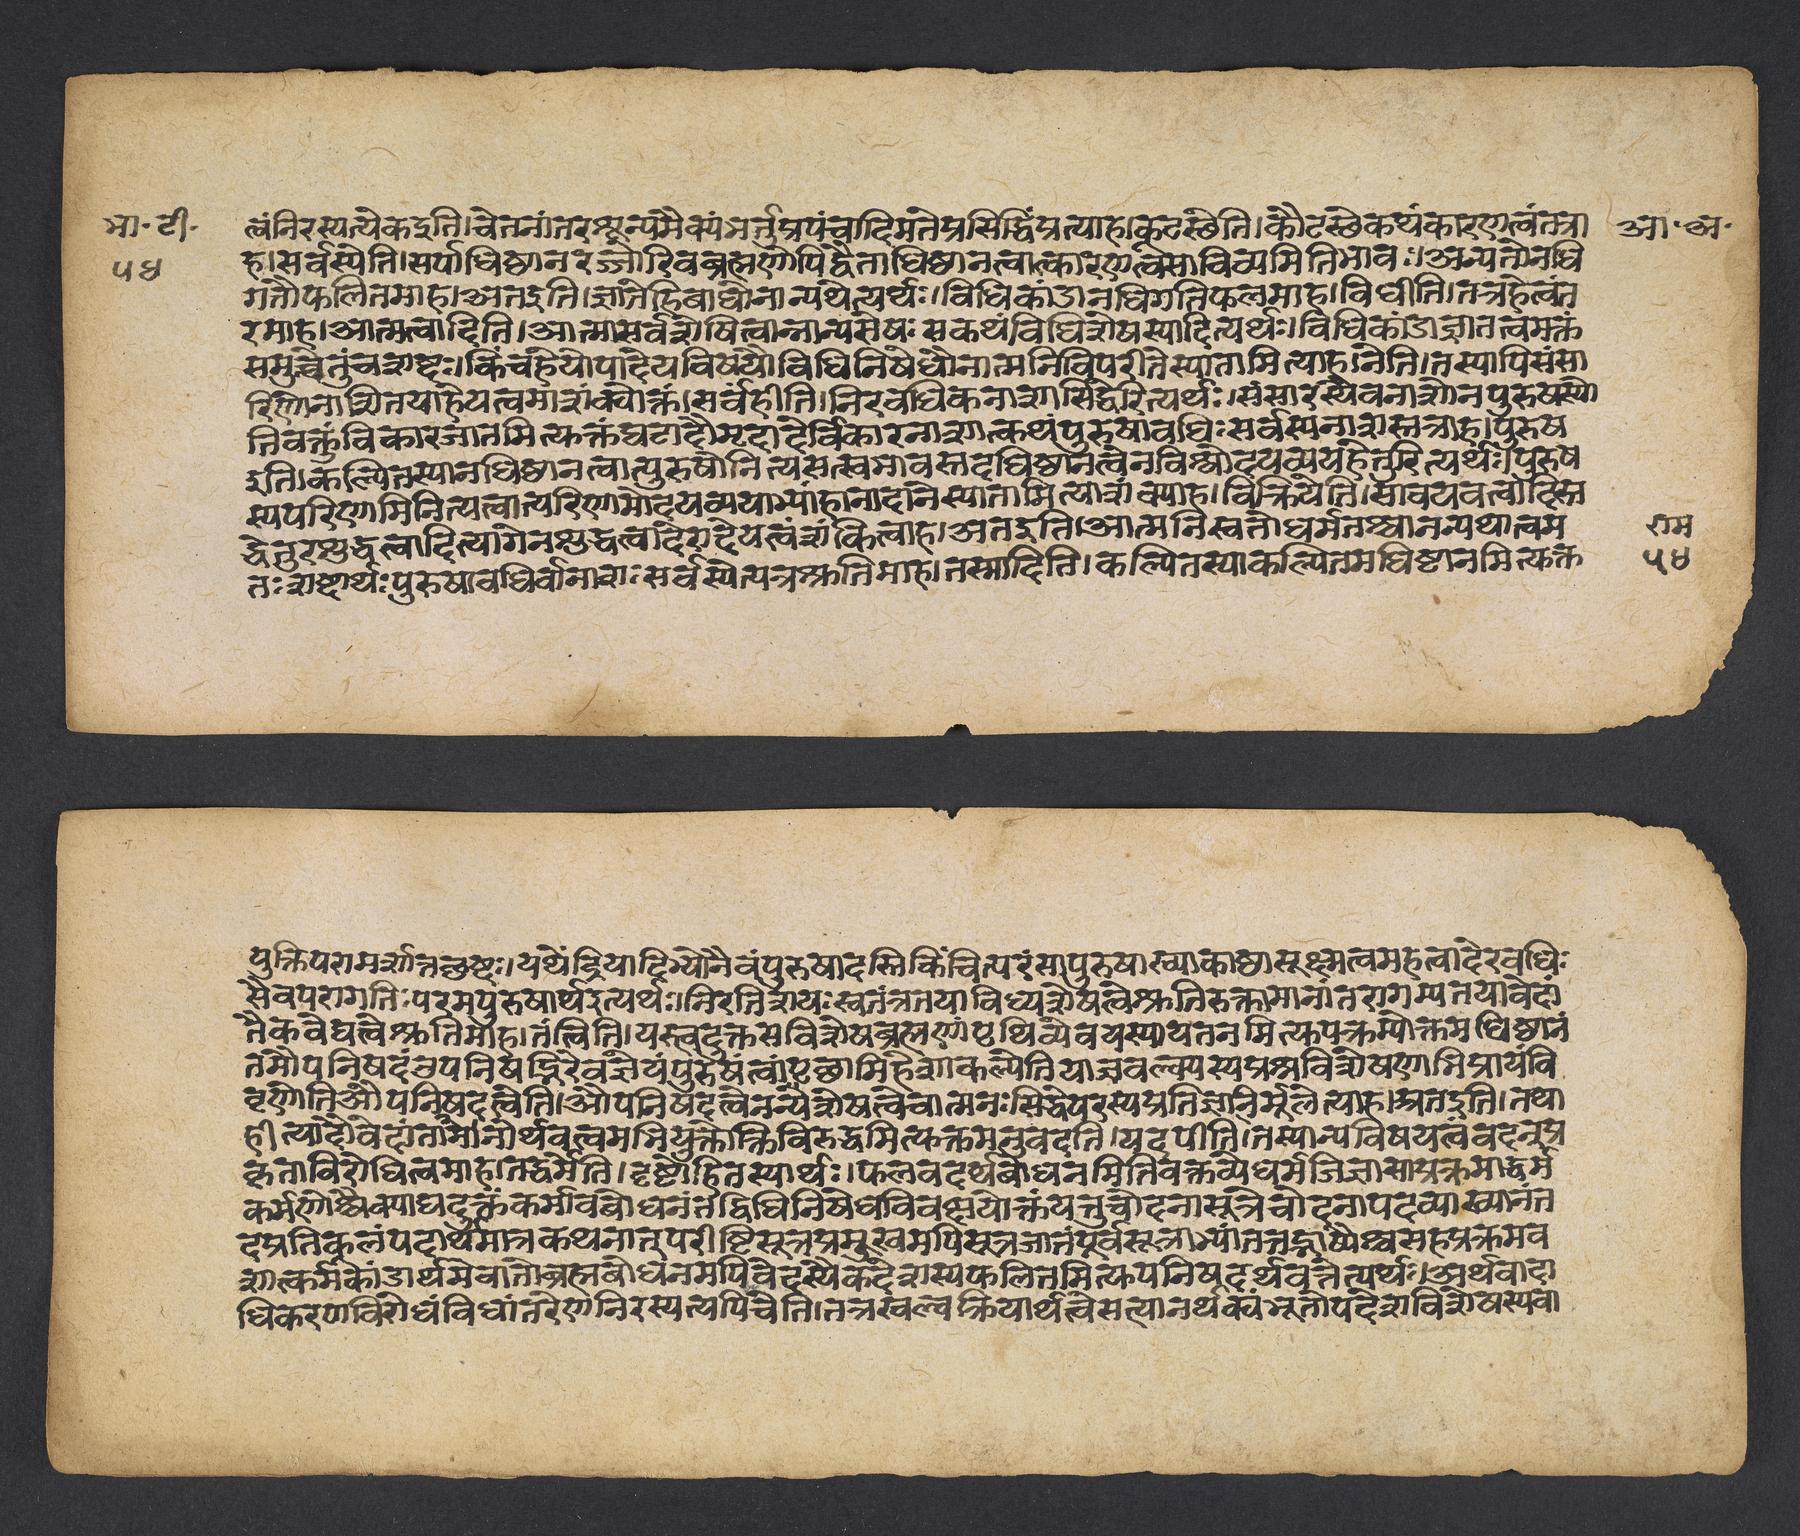 भा॰ टी॰
५४
आ॰ अ॰
त्वंनिरस्यत्येकइति।चेतनांतरशून्यमैक्यंभर्तृप्रपंचादिमतेप्रसिद्धिंप्रत्याह।कूटस्थेति।कौटस्थेकथंकारणत्वंतत्रा
ह।सर्वस्येति।सर्पाधिष्ठानरज्जोरिवब्रह्मणोपिद्वैताधिष्ठानत्वात्कारणत्वसाविव्यमितिभावः।अन्यतोनधि
गतौफलितमाह।अतइति।ज्ञातेहिबाधोनान्यथेत्यर्थः।विधिकांडानधिगतिफलमाह।विधीति।तत्रहेत्वंत
रमाह।आत्मत्वादिति।आत्मासर्वशेषित्वान्नान्यशेषः सकथंविधिशेषस्यादित्यर्थः।विधिकांडाज्ञातत्वमुक्तं
समुच्चेतुंचशब्दः।किंचहेयोपादेयविषयौविधिनिषेधौनात्मनिविपरीतेस्यातामित्याह।नेति।तस्यापिसंसा
रिणोनाशितयाहेयत्वमाशंक्योक्तं।सर्वंहीति।निरवधिकनाशासिद्धेरित्यर्थः।संसारस्यैवनाशोनपुरुषस्ये
तिवक्तुंविकारजातमित्युक्तंघटादौमृदादेर्विकारनाशात्कथंपुरुषावधिःसर्वस्यनाशस्तत्राह।पुरुष
इति।कल्पितस्यानधिष्ठानत्वात्पुरुषोनित्यसत्स्वभावस्तदधिष्ठानत्वेनविश्वोदयव्ययहेतुरित्यर्थः।पुरुष
स्यपरिणामिनित्यत्वात्परिणामोदयव्ययाभ्यांहानादानेस्यातामित्याशंक्याह।विक्रियेति।सावयवत्वादिस्त
द्धेतुरशुद्धत्वादित्यागेनशुद्धत्वादेरादेयत्वंशंकित्वाह।अतइति।आत्मनिस्वतोधर्मतश्चानन्यथात्वम
तः शब्दार्थः पुरुषावधिर्वानाशः सर्वस्येत्यत्रश्रुतिमाह।तस्मादिति।कल्पितस्याकल्पितमधिष्टानमित्युक्त
राम
५४
युक्तिपरामर्शात्तच्छब्दः।यथेंद्रियादिभ्योनैवंपुरुषादस्तिकिंचित्परंसापुरुषाख्याकाष्ठासूक्ष्मत्वमहत्वादेरवधिः
सैवपरागतिःपरमपुरुषार्थइत्यर्थः।निरतिशयः स्वतंत्रतयाविध्यशेषत्वेश्रुतिरुक्तामानांतरागम्यतयावेदां
तैकवेद्यत्वेश्रुतिमाह।तंत्विति।यस्त्वदुक्तसविशेषब्रह्मणांपृथिव्येवयस्यायतनमित्युपक्रम्योक्तमधिष्ठानं
तमौपनिषदंचपनिषद्भिरेवज्ञेयंपुरुषंत्वांपृच्छामिहेशाकल्येतियाज्ञवल्क्यस्यप्रश्नविशेषणाभिप्रायंवि
वृणोतिऔपनिषदत्वेति।औपनिषदत्वेनन्यशेषत्वेचात्मनःसिद्धेपरस्यप्रतिज्ञानिर्मूलेत्याह।अतइति।तथा
हीत्यादौवेदांतानामानार्थवत्वमभियुक्तोक्तिविरुद्धमित्युक्तमनुवदति।यदपीति।तस्यान्यविषयत्वंवदन्प्र
कृताविरोधित्वमाह।तद्धर्मेति।दृष्टोहितस्यार्थः।फलवदर्थबोधनमितिवक्तव्येधर्मजिज्ञासाप्रक्रमाद्धर्म
कर्मणोश्चैक्याद्यदुक्तंकर्मावबोधनंतद्विधिनिषेधविवक्षयोक्तंयत्तुचोदनासूत्रेचोदनापदव्याख्यानंत
दप्रतिकूलंपदार्थमात्रकथनात्परीष्टिसूत्रप्रमुखमपिसूत्रजातंपूर्वसूत्राभ्यांतत्तद्भाष्यैश्चसहप्रक्रमव
शात्कर्मकांडार्थमेवातोब्रह्मबोधनमपिवेदस्यैकदेशस्यफलितमित्युपनिषदर्थवत्तेत्यर्थः।अर्थवादा
धिकरणविरोधंविधांतरेणनिरस्यत्यपिचेति।तत्रखल्वक्रियार्थत्वेसत्यानर्थक्यंभूतोपदेशविशेषस्यवा